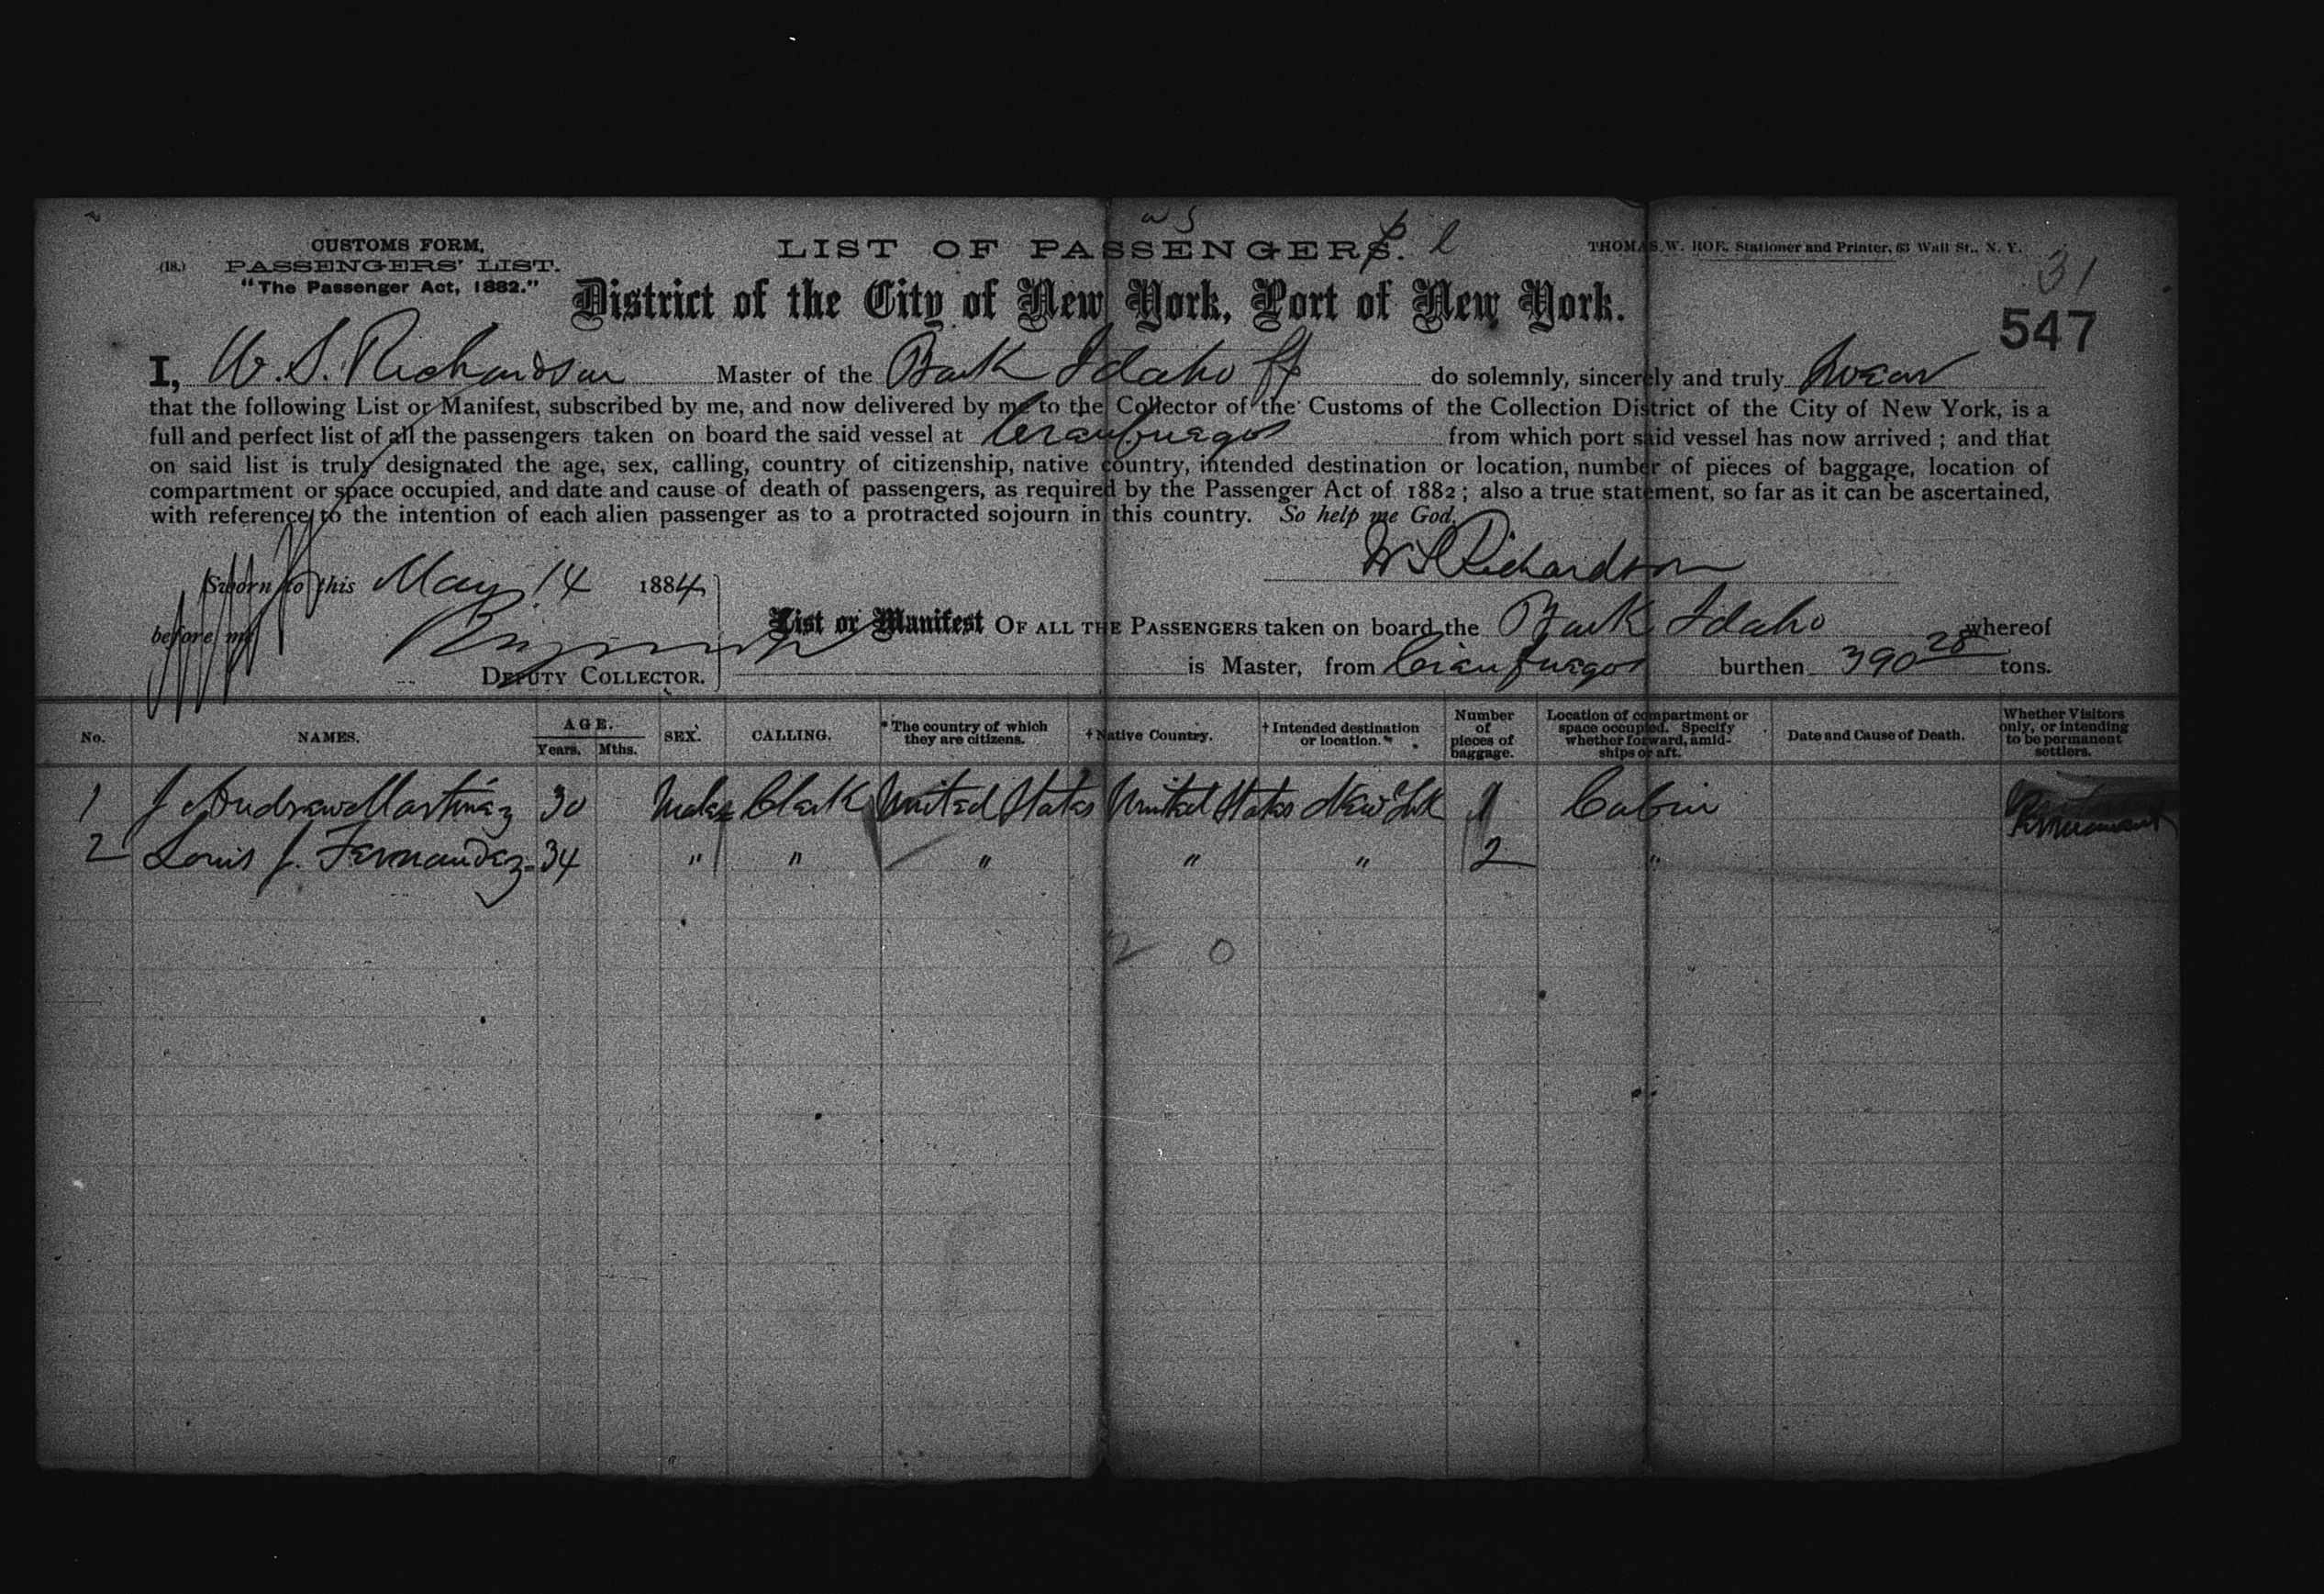 CUSTOMS FORM,
(18.) PASSENGERS' LIST.
"The Passenger Act, 1882."
LIST OF PASSENGERS.
THOMAS W. ROE, Stationer and Printer, 63 Wall St., N. Y.
31
District of the City of New York, Port of New York.
547
I, W. S. Richardson Master of the Bark Idaho do solemnly, sincerely and truly swear
that the following List or Manifest, subscribed by me, and now delivered by me to the Collector of the Customs of the Collection District of the City of New York, is a
full and perfect list of all the passengers taken on board the said vessel at Cienfuegos from which port said vessel has now arrived; and that
on said list is truly designated the age, sex, calling, country of citizenship, native country, intended destination or location, number of pieces of baggage, location of
compartment or space occupied, and date and cause of death of passengers, as required by the Passenger Act of 1882; also a true statement, so far as it can be ascertained,
with reference to the intention of each alien passenger as to a protracted sojourn in this country. So help me God.
W S Richardson
Sworn to this May 14 1884
before me
List or Manifest OF ALL THE PASSENGERS taken on board the Bark Idaho whereof
DEPUTY COLLECTOR.
is Master, from Cienfuegos burthen 390 28 tons.
No. NAMES. AGE. Years. Mths. SEX. CALLING. * The country of which they are citizens. † Native Country. † Intended destination or location.* Number of pieces of baggage. Location of compartment or space occupied. Specify whether forward, amidships or aft. Date and Cause of Death. Whether Visitors only, or intending to be permanent settlers.
1 J Andrew Martinez 30 Male Clerk United States United States New York 1 Cabin Permanent
2 Louis J. Fernandez 34 " " " " " 2 "
2 0